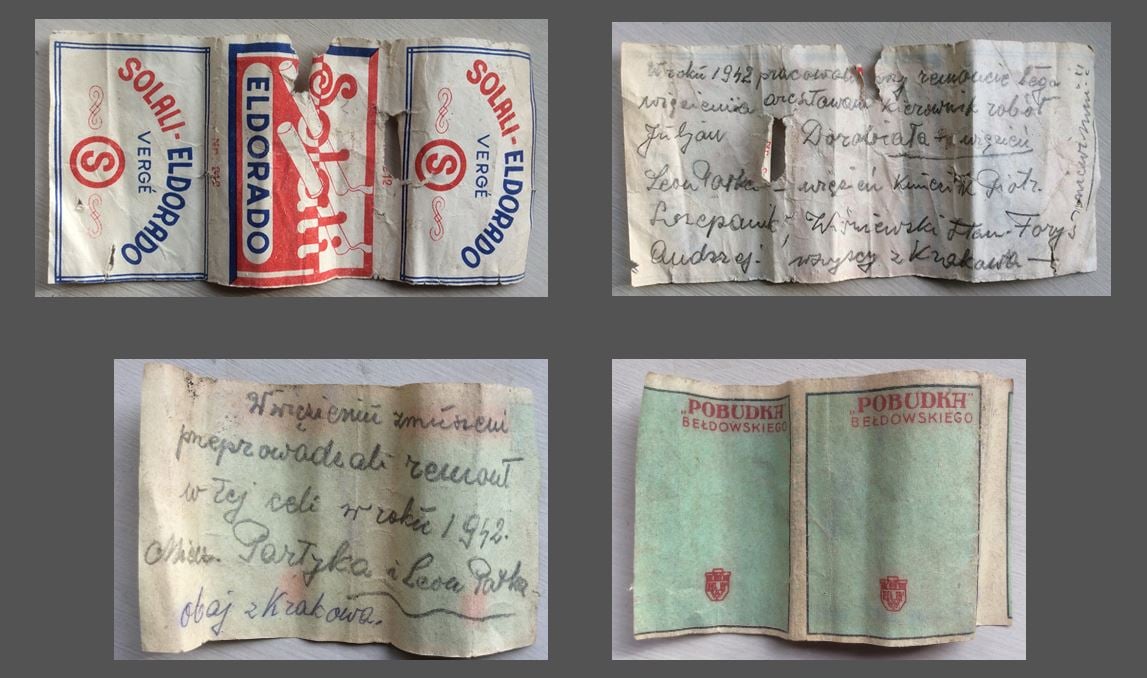 SOLALI-ELDORADO
VERGÉ
S
ELDORADO
Solali
SOLALI-ELDORADO
VERGÉ
S
W roku 1942 pracowali przy remoncie tego
więzienia aresztowani kierownik robót
Juljan Dorobiała więzień
Leon Patka – więzień Piotr
Szczepanik, Wiśniewski Stan. Foryś
Andrzej. wszyscy z Krakowa –
W więzieniu zmuszeni
przeprowadzali remont
w tej celi w roku 1942.
Partyka i Leon Patka
obaj z Krakowa.
„POBUDKA"
BEŁDOWSKIEGO
„POBUDKA"
BEŁDOWSKIEGO